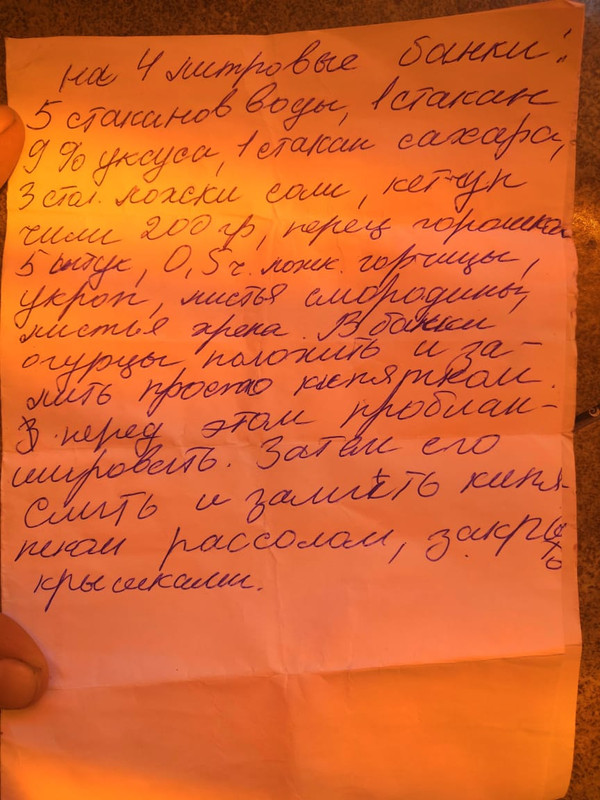 на 4 литровые банки:
5 стаканов воды, 1 стакан
9 % уксуса, 1 стакан сахара,
3 стол. ложски соли, кетчуп
чили 200 гр, перец горошком
5 штук, 0,5 ч. ложк. горчицы,
укроп, листья смородины,
листья хрена. В банки
огурцы положить и за-
лить просто кипятком.
перед этим проблан-
шировать. Затем его
слить и залить кипя-
тком рассолом, закрыть
крышками.